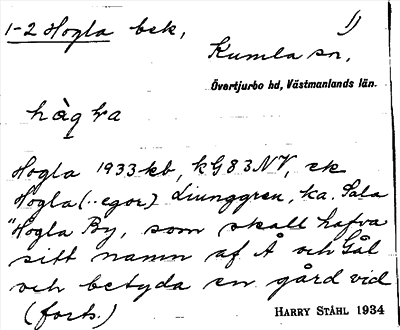 1-2 Hogla bek, 1)
Kumla sn,
Övertjurbo hd, Västmanlands län.
hàgra
Hogla 1933 kb, kG83NV, ek
Hogla (..egor) Liunggren, ka. Sala
"Hogla By, som skall hafva
sitt namn af Å och Gål
och betyda en gård vid
(forts.)
HARRY STÅHL 1934